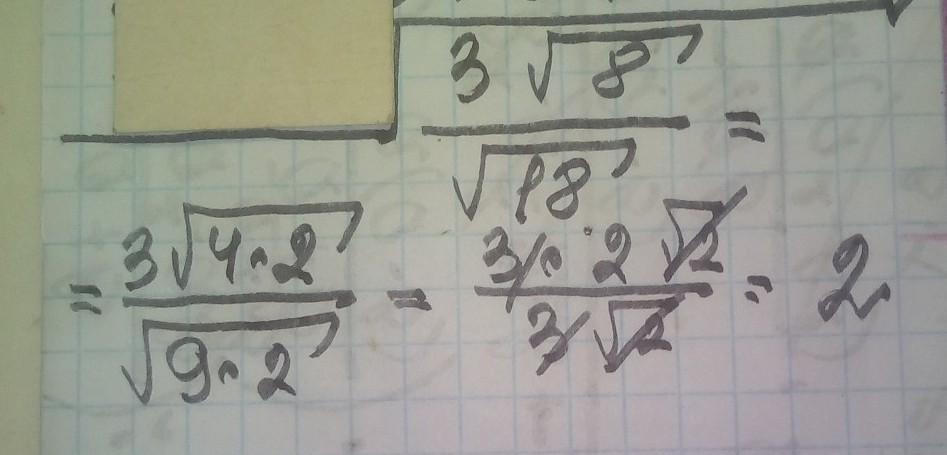 3√8 / √18 =
= 3√4·2 / √9·2 = 3·2√2 / 3√2 = 2